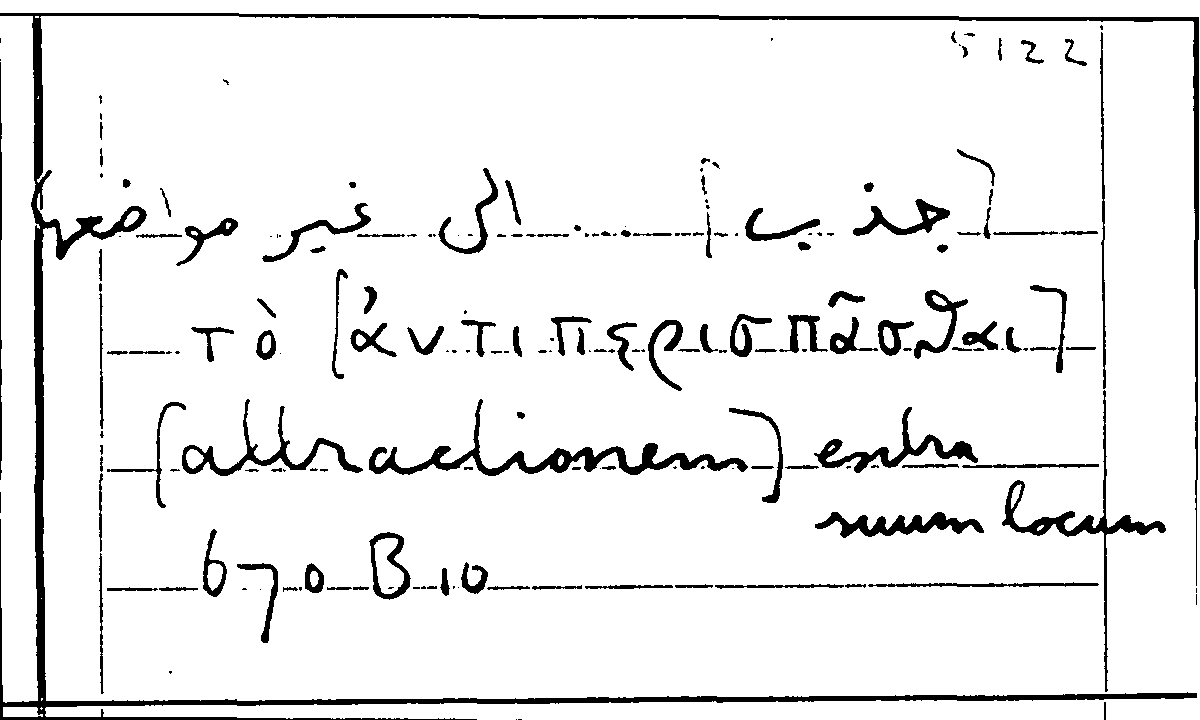 5122
[جذب] .... الى غير مواضعها
τὸ [ἀντιπερισπᾶσθαι]
[attractionem] extra
suum locum
670 B 10